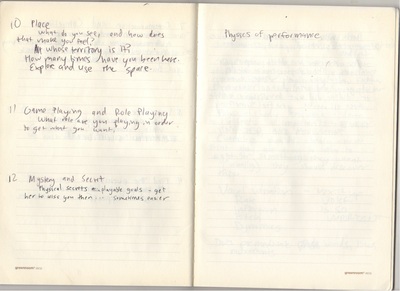 10 Place
What do you see, and how does
that make you feel?
At whose territory is it?
How many times have you been here.
Explore and use the space
11 Game Playing and Role Playing
What role are you playing in order
to get what you want.
12 Mystery and Secret
Physical secrets playable goals - get
her to kiss you then sometimes never
Physics of performance
greenroom
greenroom